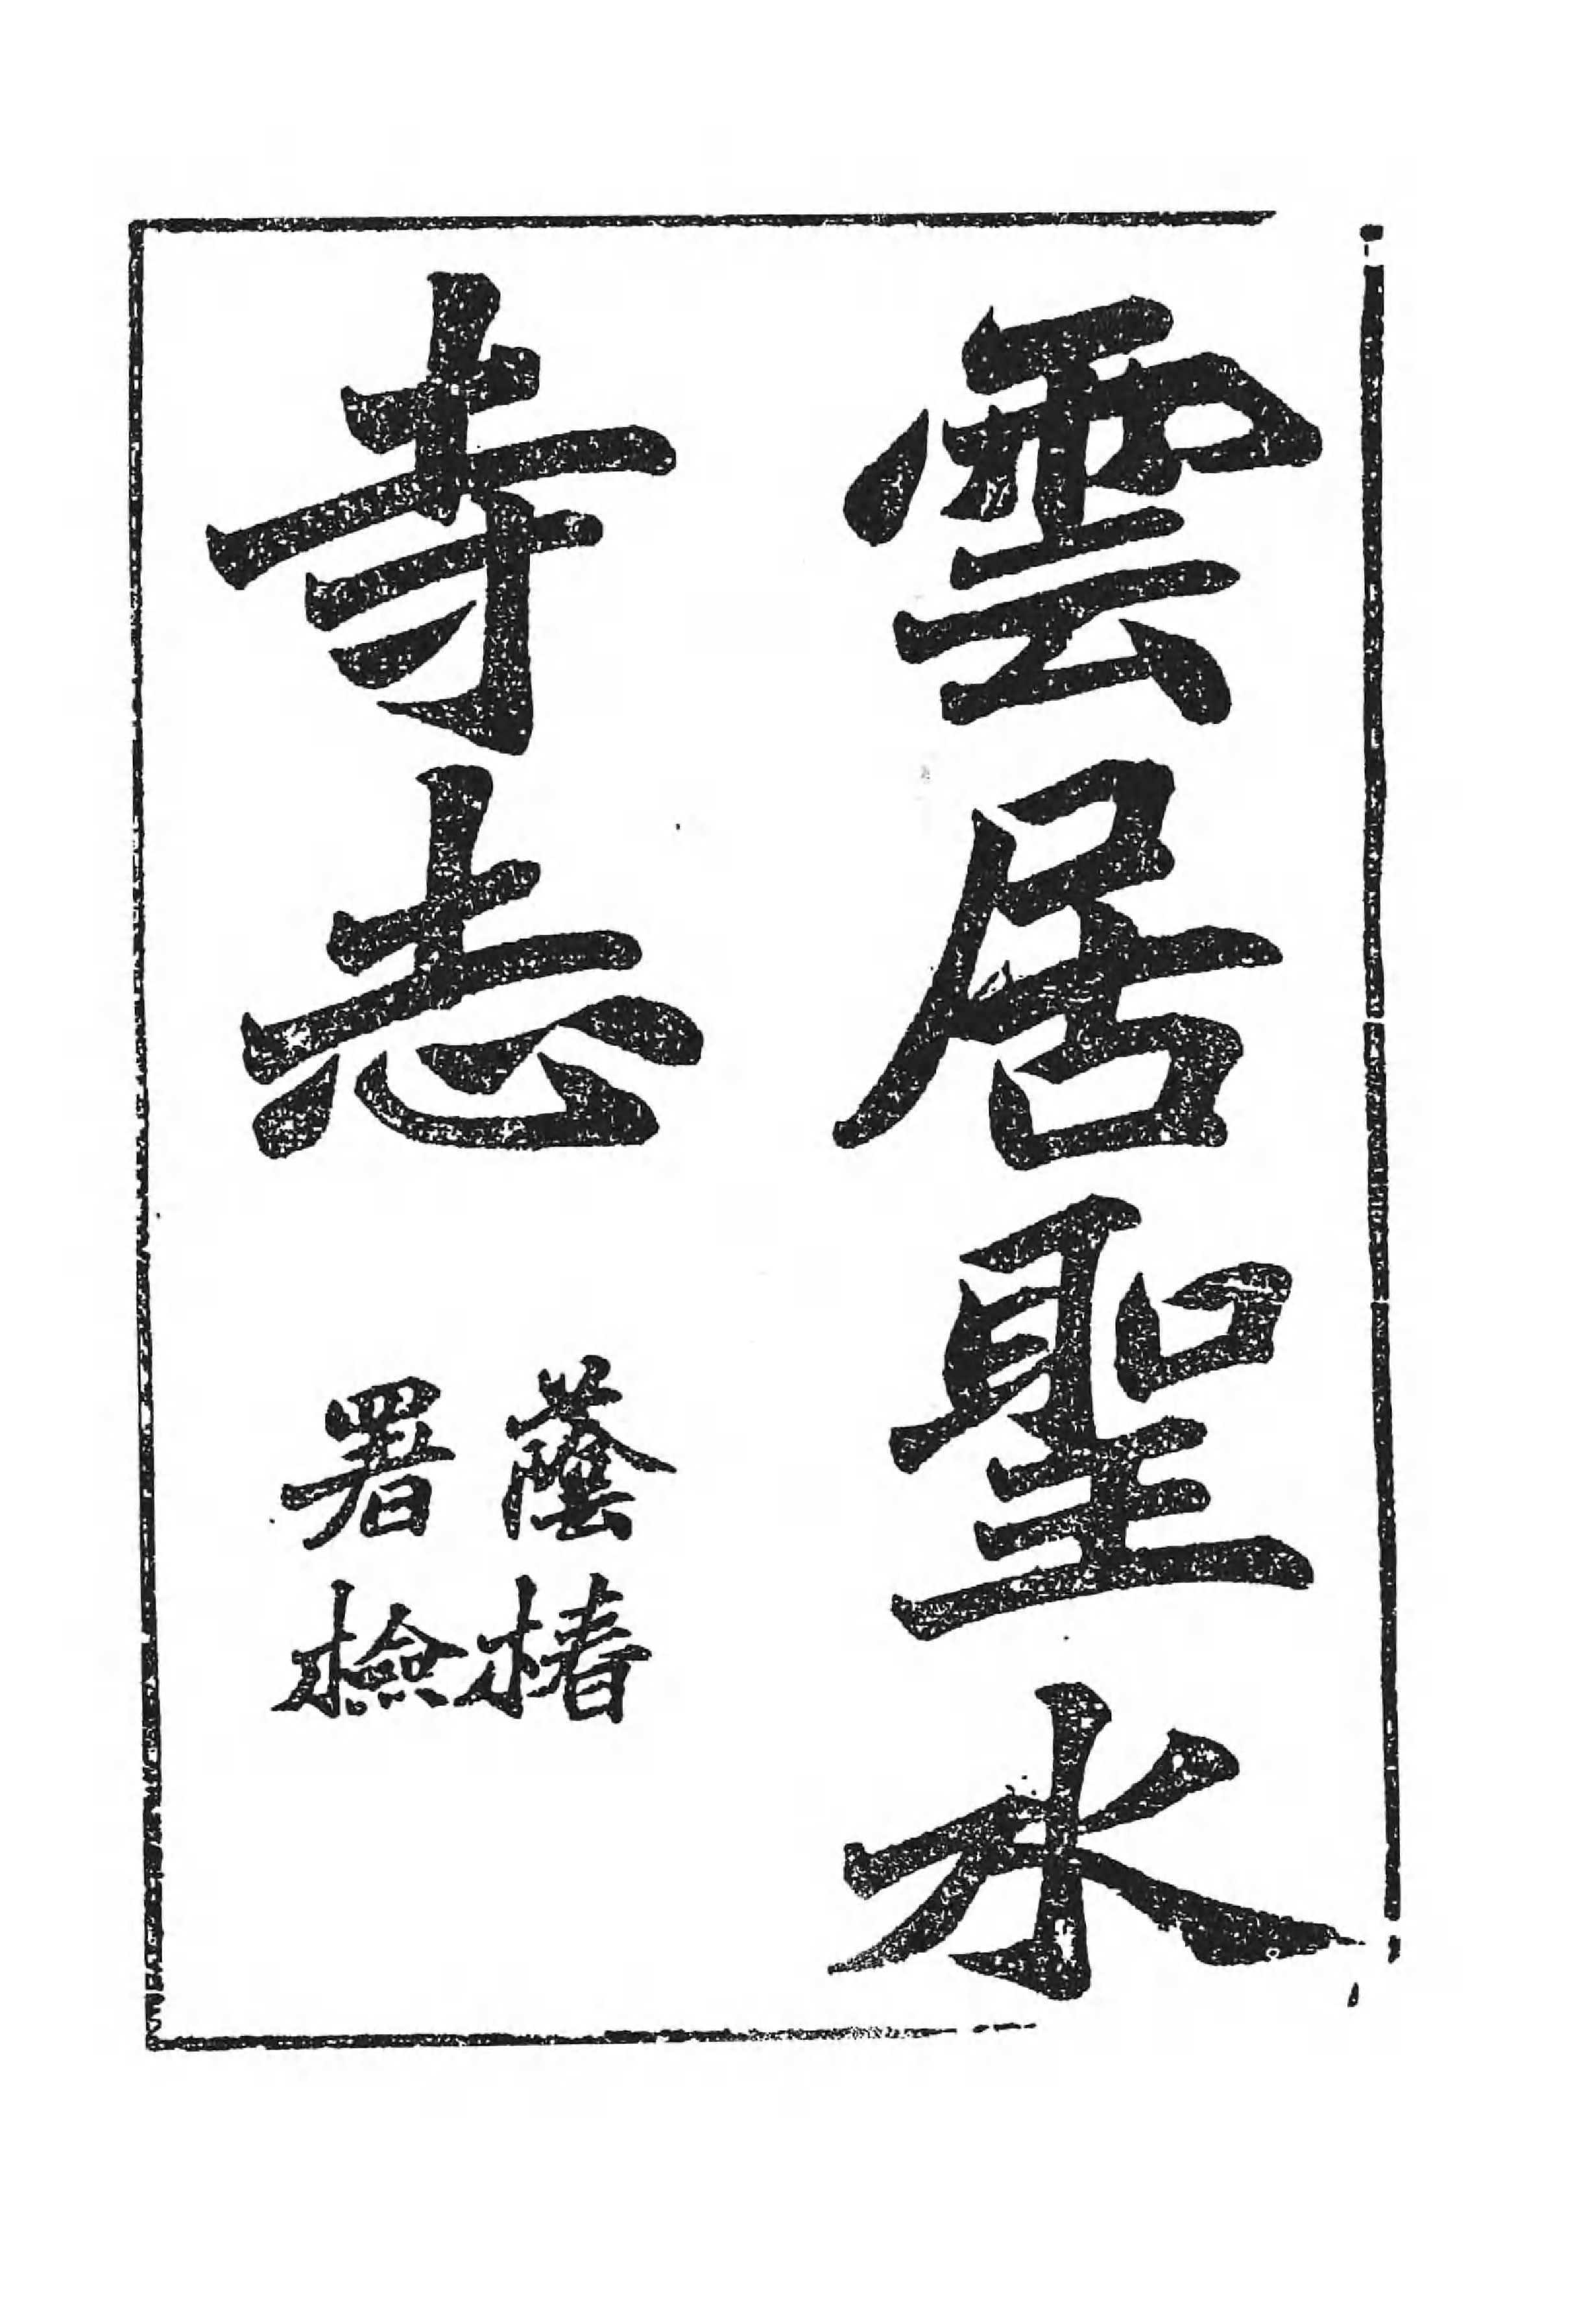 雲居聖水
寺志
蔭椿
署檢